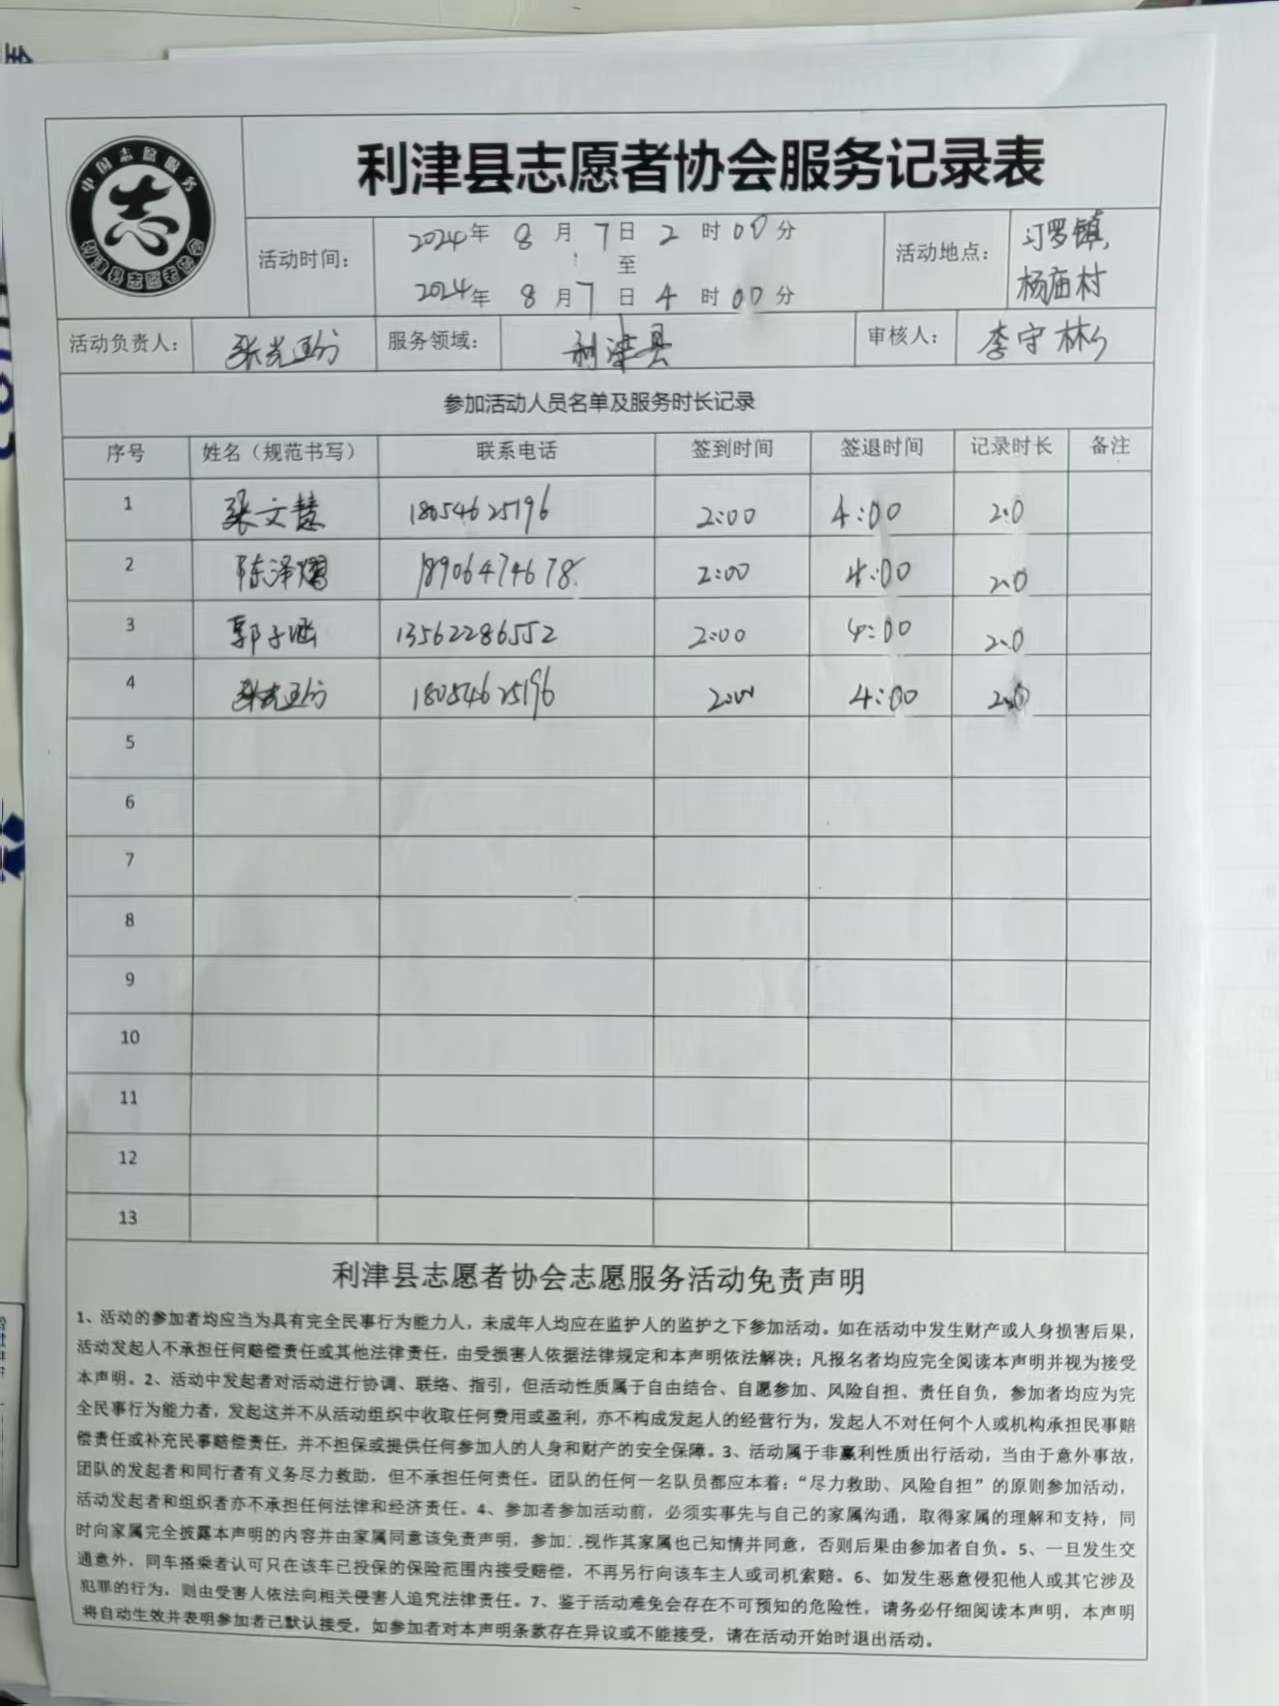 中国志愿服务
志
利津县志愿者协会
利津县志愿者协会服务记录表
活动时间：
2024年 8 月 7日 2 时00分
至
2024年 8 月7 日 4 时00分
活动地点：
刁罗镇,
杨庙村
活动负责人：
服务领域：
利津县
审核人：
李守彬
参加活动人员名单及服务时长记录
序号 姓名（规范书写） 联系电话 签到时间 签退时间 记录时长 备注
1 张文慧 18054625196 2:00 4:00 2.0
2 陈泽熠 18906474678 2:00 4:00 2.0
3 郭子涵 13562286552 2:00 4:00 2.0
4 18054625196 2:00 4:00 2.0
5
6
7
8
9
10
11
12
13
利津县志愿者协会志愿服务活动免责声明
1、活动的参加者均应当为具有完全民事行为能力人，未成年人均应在监护人的监护之下参加活动。如在活动中发生财产或人身损害后果，
活动发起人不承担任何赔偿责任或其他法律责任，由受损害人依据法律规定和本声明依法解决；凡报名者均应完全阅读本声明并视为接受
本声明。2、活动中发起者对活动进行协调、联络、指引，但活动性质属于自由结合、自愿参加、风险自担、责任自负，参加者均应为完
全民事行为能力者，发起这并不从活动组织中收取任何费用或盈利，亦不构成发起人的经营行为，发起人不对任何个人或机构承担民事赔
偿责任或补充民事赔偿责任，并不担保或提供任何参加人的人身和财产的安全保障。3、活动属于非赢利性质出行活动，当由于意外事故，
团队的发起者和同行者有义务尽力救助，但不承担任何责任。团队的任何一名队员都应本着：“尽力救助、风险自担”的原则参加活动，
活动发起者和组织者亦不承担任何法律和经济责任。4、参加者参加活动前，必须实事先与自己的家属沟通，取得家属的理解和支持，同
时向家属完全披露本声明的内容并由家属同意该免责声明，参加 视作其家属也已知情并同意，否则后果由参加者自负。5、一旦发生交
通意外，同车搭乘者认可只在该车已投保的保险范围内接受赔偿，不再另行向该车主人或司机索赔。6、如发生恶意侵犯他人或其它涉及
犯罪的行为，则由受害人依法向相关侵害人追究法律责任。7、鉴于活动难免会存在不可预知的危险性，请务必仔细阅读本声明，本声明
将自动生效并表明参加者已默认接受，如参加者对本声明条款存在异议或不能接受，请在活动开始时退出活动。